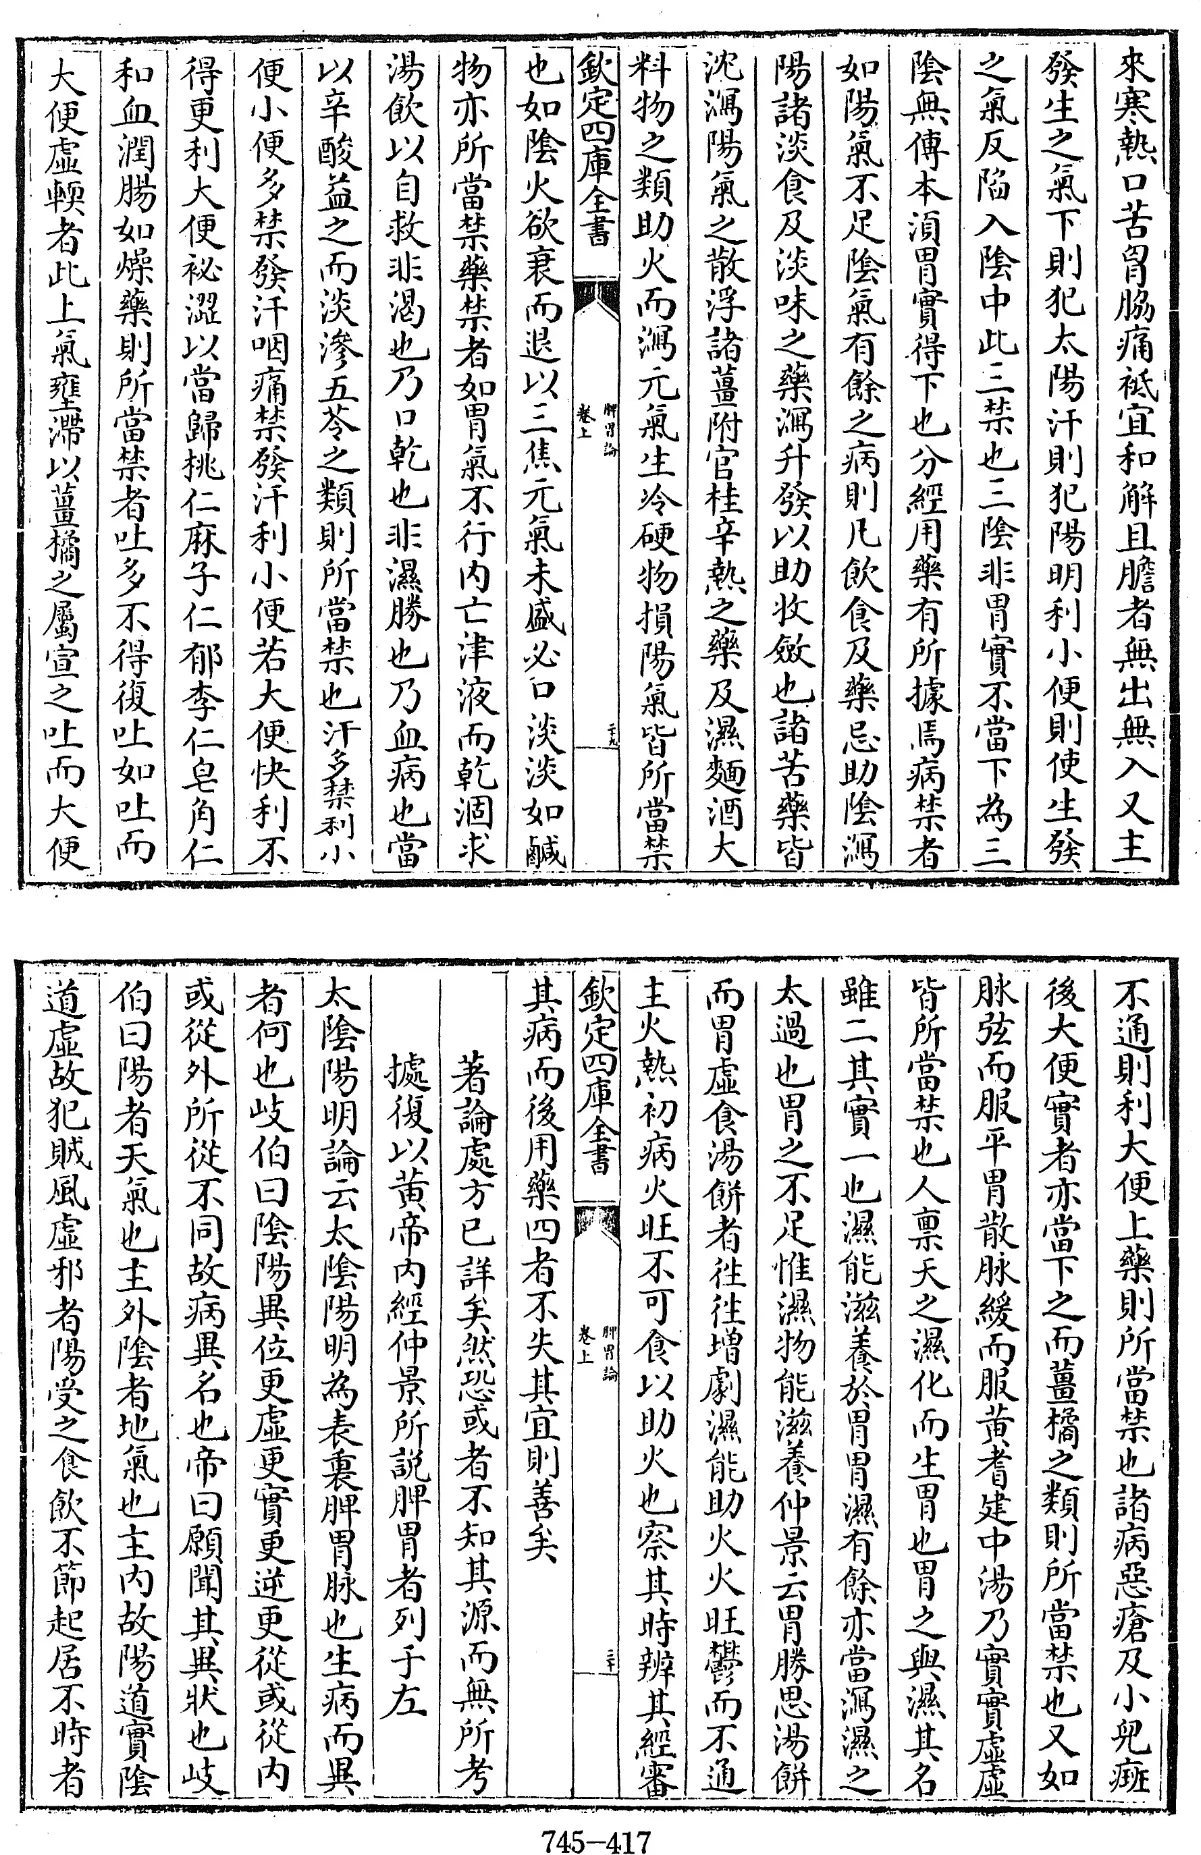 來寒熱口苦胷脇痛袛宜和解且膽者無出無入又主
發生之氣下則犯太陽汗則犯陽明利小便則使生發
之氣反陷入陰中此三禁也三陰非胃實不當下為三
陰無傳本湏胃實得下也分經用藥有所據焉病禁者
如陽氣不足陰氣有餘之病則凡飲食及藥忌助陰瀉
陽諸淡食及淡味之藥瀉升發以助收斂也諸苦藥皆
沈瀉陽氣之散浮諸薑附官桂辛熱之藥及濕麵酒大
料物之類助火而瀉元氣生冷硬物損陽氣皆所當禁
欽定四庫全書
脾胃論
卷上
二十九
也如陰火欲衰而退以三焦元氣未盛必口淡淡如鹹
物亦所當禁藥禁者如胃氣不行内亡津液而乾涸求
湯飲以自救非渴也乃口乾也非濕勝也乃血病也當
以辛酸益之而淡滲五苓之類則所當禁也汗多禁利小
便小便多禁發汗咽痛禁發汗利小便若大便快利不
得更利大便袐澀以當歸桃仁麻子仁郁李仁皂角仁
和血潤腸如燥藥則所當禁者吐多不得復吐如吐而
大便虛輭者此上氣壅滯以薑橘之屬宣之吐而大便
不通則利大便上藥則所當禁也諸病惡瘡及小兒癍
後大便實者亦當下之而薑橘之類則所當禁也又如
脉弦而服平胃散脉緩而服黄耆建中湯乃實實虛虛
皆所當禁也人禀天之濕化而生胃也胃之與濕其名
雖二其實一也濕能滋養於胃胃濕有餘亦當瀉濕之
太過也胃之不足惟濕物能滋養仲景云胃勝思湯餅
而胃虛食湯餅者徃徃增劇濕能助火火旺鬱而不通
主火熱初病火旺不可食以助火也察其時辨其經審
欽定四庫全書
脾胃論
卷上
三十
其病而後用藥四者不失其宜則善矣
著論處方已詳矣然恐或者不知其源而無所考
據復以黄帝内經仲景所說脾胃者列于左
太陰陽明論云太陰陽明為表裏脾胃脉也生病而異
者何也岐伯曰陰陽異位更虛更實更逆更從或從内
或從外所從不同故病異名也帝曰願聞其異狀也岐
伯曰陽者天氣也主外陰者地氣也主内故陽道實陰
道虛故犯賊風虛邪者陽受之食飲不節起居不時者
745-417